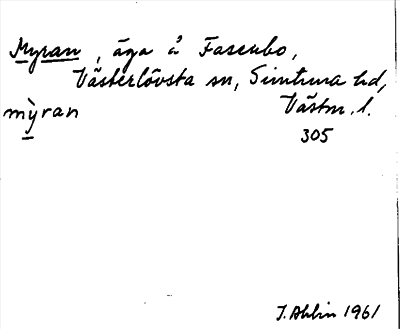 Myran, äga å Fasenbo,
Västerlövsta sn, Simtuna hd,
mỳran Västm. l.
305
J. Ahlin 1961